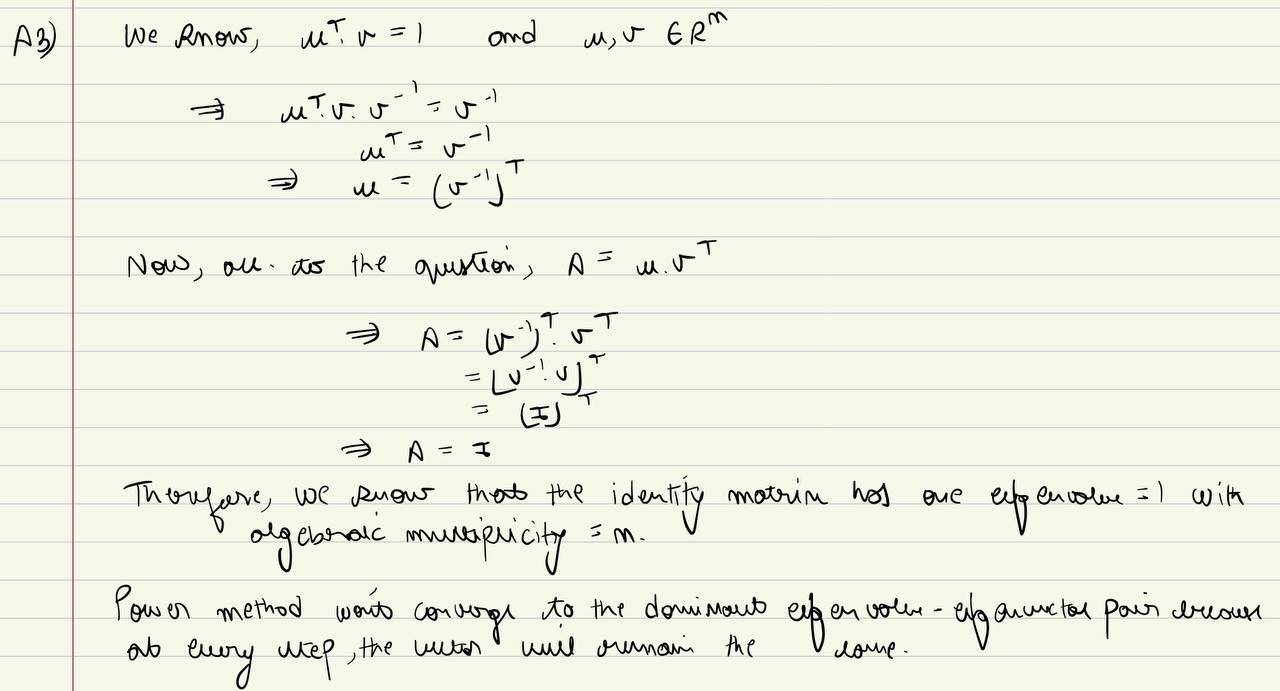 A3) We know, u^T. v = 1 and u, v ∈ R^m
⇒ u^T. v. v^-1 = v^-1
u^T = v^-1
⇒ u = (v^-1)^T
Now, acc. to the question, A = u. v^T
⇒ A = (v^-1)^T. v^T
= [v^-1. v]^T
= (I)^T
⇒ A = I
Therefore, we know that the identity matrix has one eigenvalue = 1 with
algebraic multiplicity = m.
Power method won't converge to the dominant eigenvalue - eigenvector pair because
at every step, the vector will remain the same.